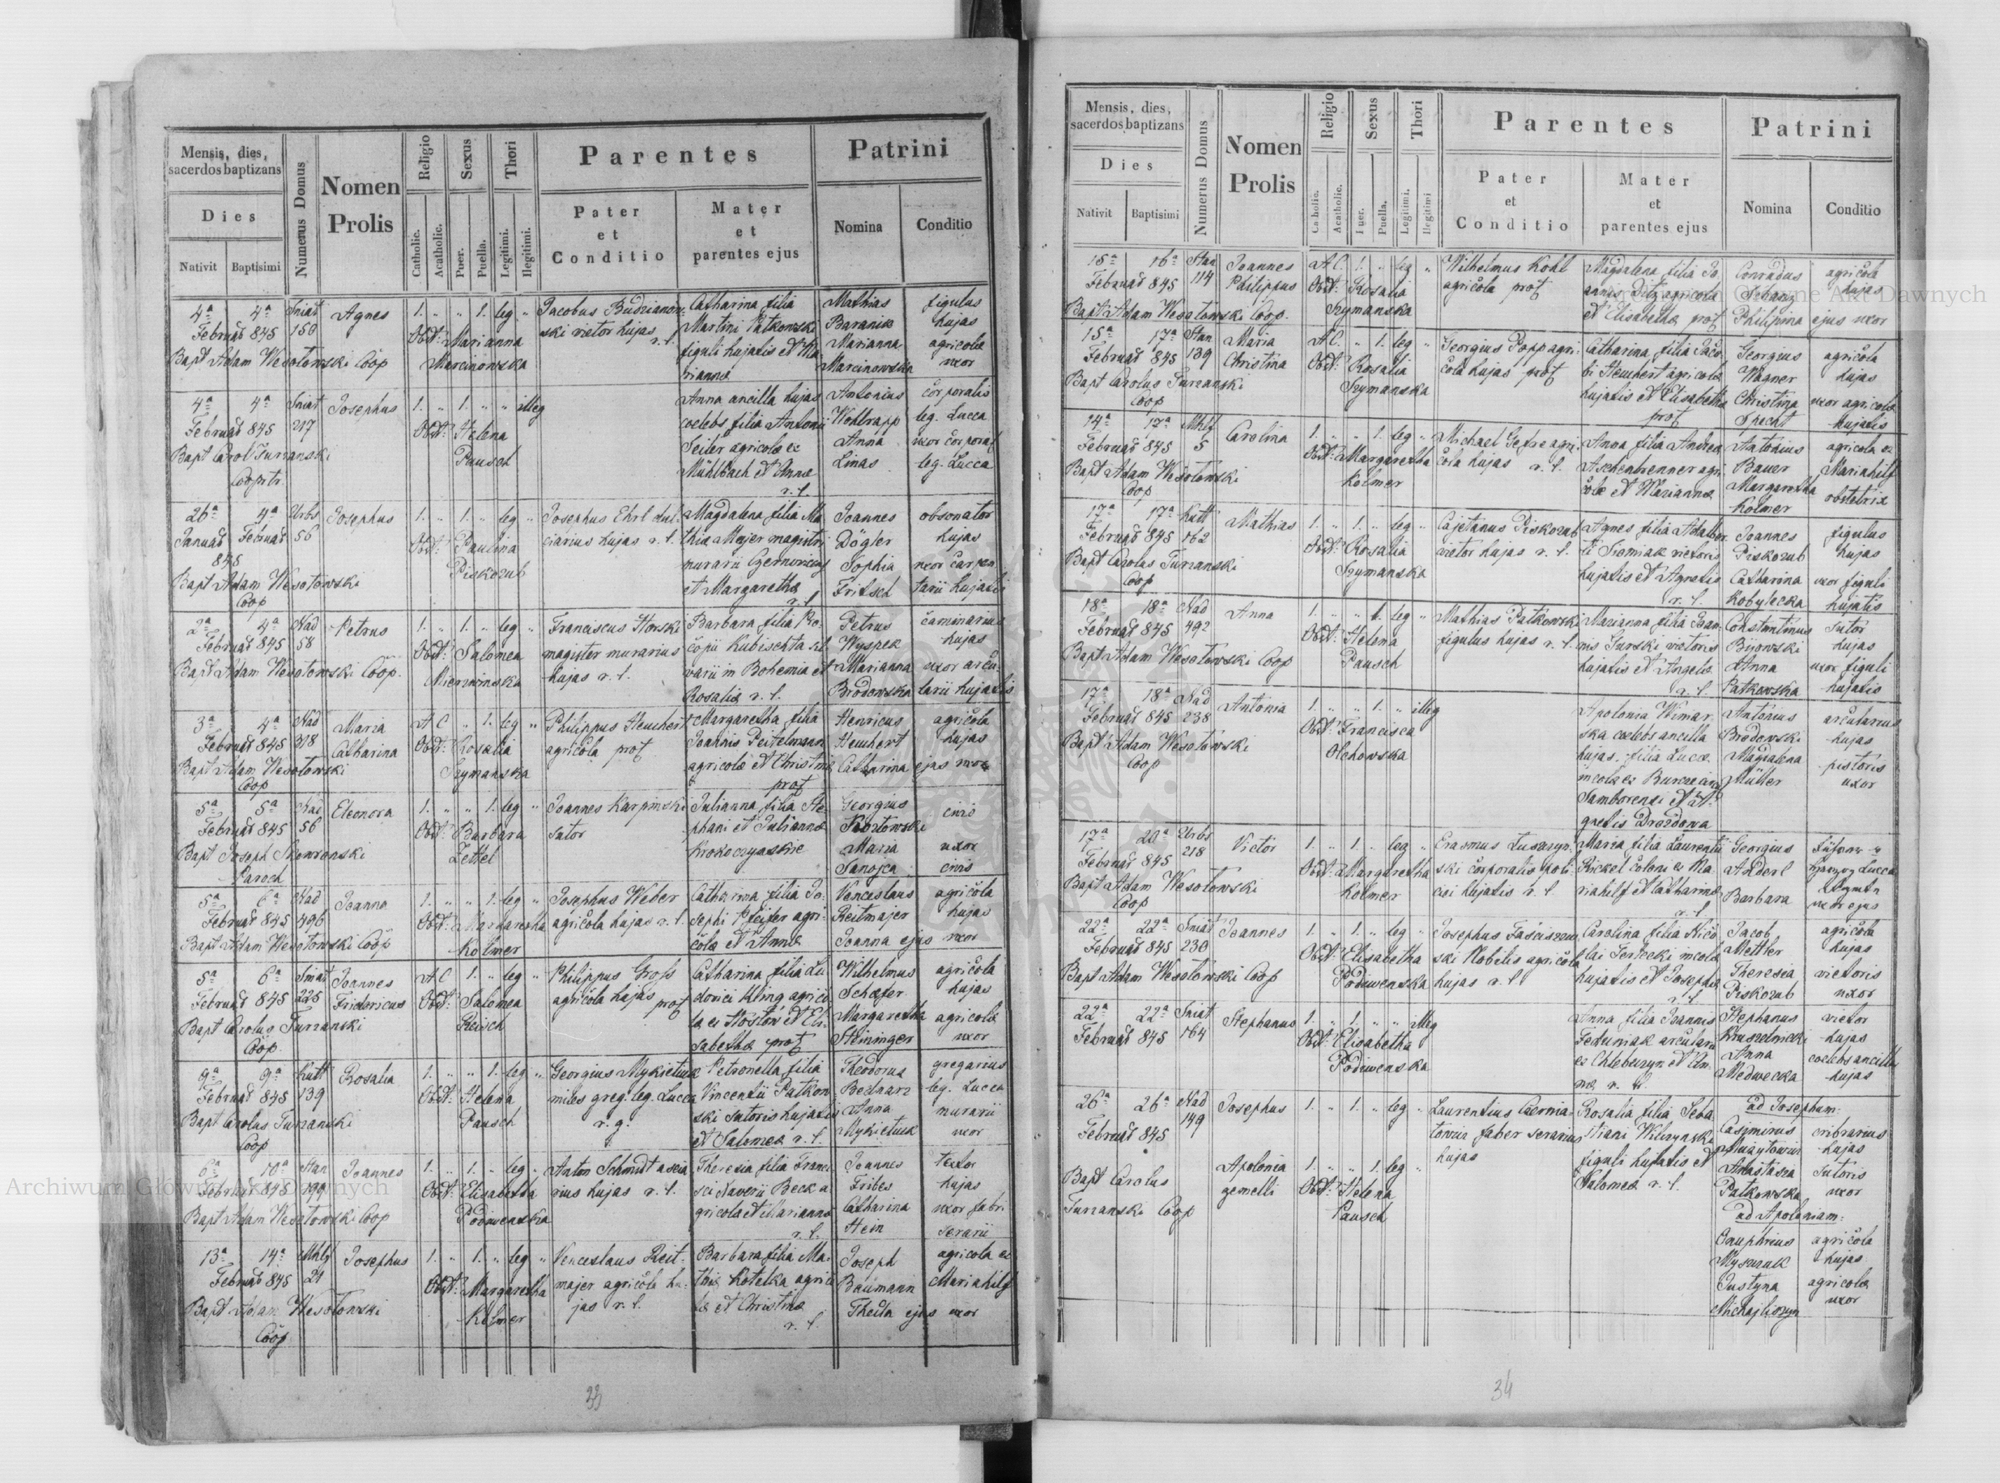 Mensis, dies,
sacerdos baptizans
Numerus Domus
Nomen
Prolis
Religio
Sexus
Thori
Parentes
Patrini
Dies
Nativit
Baptisimi
Catholic.
Acatholic.
Puer.
Puella.
Legitimi.
Ilegitimi.
Pater
et
Conditio
Mater
et
parentes ejus
Nomina
Conditio
4a 4a Sniat Agnes 1. " " 1. leg " Jacobus Catharina filia Mathias figulus
Februar 845 150 Obst: Marianna ski vietor hujas r. l. Martini Patkowski Baranik hujas
Bapt Adam Wesołowski Coop Marcinowska figuli hujatis et Ma Marianna agricola
rianna Marcinowska uxor
4a 4a Sniat Josephus 1. " 1. " " illeg Anna ancilla hujas Antonius corporalis
Februar 845 217 Obst: Helena coelebs filia Antonii Wohlrapp leg. Lucca
Bapt Carol Turzanski Pausch Seiler agricola ex Anna uxor corporal
Mühlbach et Anna Linas leg. Lucca
r. l.
26a 4a Urbs Josephus 1. " 1. " leg " Josephus Ehrl Magdalena filia Ma Joannes obsonator
Januar Februar 56 Obst: Paulina ciarius hujas r. l. thia Majer magistri Dogler hujas
845 Piskozub murarii Sophia uxor carpen
Bapt Adam Wesołowski et Margaretha Fritsch tarii hujatis
Coop r. l.
2a 4a Nad Petrus 1. " 1. " leg " Franciscus Horski Barbara filia Pro Petrus caminarius
Februar 845 58 Obst: Salomea magister murarius copii Kubischta Wyspek hujas
Bapt Adam Wesołowski Coop. Mierzwinska hujas r. l. in Bohemia et Marianna uxor arcu
Rosalia r. l. Brodowska larii hujatis
3a 4a Nad Maria A C " 1. leg " Philippus Heuchert Margaretha filia Henricus agricola
Februar 845 318 Catharina Obst: Rosalia agricola prot Joannis Beitelmann Heuchert hujas
Bapt Adam Wesołowski Szymanska agricola et Christina Catharina ejus uxor
Coop prot
5a 5a Nad Eleonora 1. " " 1. leg " Joannes Karpinski Julianna filia Ste Georgius civis
Februar 845 56 Obst: Barbara sutor phani et Julianna Kozłowski
Bapt Joseph Skowronski Zettel Maria uxor
Paroch Sanojca civis
5a 6a Nad Joanna 1. " " 1. leg " Josephus Weber Catharina filia Jo Venceslaus agricola
Februar 845 496 Obst: Margaretha agricola hujas r. l. sephi Pfeifer agri Reitmajer hujas
Bapt Adam Wesołowski Coop Kolmer cola et Anna Joanna ejus uxor
5a 6a Sniat Joannes A C 1. " leg " Philippus Gross Catharina filia Lu Wilhelmus agricola
Februar 845 225 Fridericus Obst: Salomea agricola hujas prot dovici Kling agrico Schäfer hujas
Bapt Carolus Turzanski Reisch la ex et Eli Margaretha agricola
Coop. sabetha prot Steininger uxor
9a 9a Kutt Rosalia 1. " " 1. leg " Georgius Mykietiuk Petronella filia Theodorus gregarius
Februar 845 139 Obst: Helena miles greg. leg. Lucca Vincentii Patkow Bednarz leg. Lucca
Bapt Carolus Turzanski Pausch r. g. ski sutoris hujatis Anna murarii
Coop et Salomea r. l. Mykietiuk uxor
6a 10a Stan Joannes 1. " 1. " leg " Anton Schmidt ascia Theresia filia Franci Joannes textor
Februar 845 199 Obst: Elisabetha rius hujas r. l. sci Xaverii Beck a Fribes hujas
Bapt Adam Wesołowski Coop Podiwenska gricola et Marianna Catharina uxor fabri
r. l. Stein serarii
13a 14a Mhlf Josephus 1. " 1. " leg " Venceslaus Reit Barbara filia Ma Joseph agricola ex
Februar 845 21 Obst: Margaretha majer agricola hu thia Kotelka agrico Baumann Mariahilf
Bapt Adam Wesołowski Kolmer jas r. l. la et Christina Thecla ejus uxor
Coop r. l.
33
Mensis, dies,
sacerdos baptizans
Numerus Domus
Nomen
Prolis
Religio
Sexus
Thori
Parentes
Patrini
Dies
Nativit
Baptisimi
Catholic.
Acatholic.
Puer.
Puella.
Legitimi.
Ilegitimi
Pater
et
Conditio
Mater
et
parentes ejus
Nomina
Conditio
16a Stan Joannes A C. 1. " leg " Wilhelmus Kohl Magdalena filia Jo Conradus agricola
Februar 845 114 Philippus Obst: Rosalia agricola prot annis agricola hujas
Bapt Adam Wesołowski Coop. Szymanska et Elisabetha prot Philipina ejus uxor
15a 17a Stan Maria A C. " 1. leg " Georgius Popp agri Catharina filia Jaco Georgius agricola
Februar 845 139 Christina Obst: Rosalia cola hujas prot bi Heuchert agricola Wagner hujas
Bapt Carolus Turzanski Szymanska hujatis et Elisabetha Christina uxor agricola
Coop prot Specht hujatis
14a 17a Mhlf Carolina 1. " " 1. leg " Michael agri Anna filia Andrea Antonius agricola ex
Februar 845 5 Obst: Margaretha cola hujas r. l. Aschenbrenner agri Bauer Mariahilf
Bapt Adam Wesołowski Kolmer cola et Marianna Margaretha obstetrix
Coop Kolmer
17a 17a Kutt Mathias 1. " 1. " leg " Cajetanus Piskozub Agnes filia Adalber Joannes figulus
Februar 845 162 Obst: Rosalia vietor hujas r. l. ti Siemiak vietoris Piskozub hujas
Bapt Carolus Turzanski Szymanska hujatis et Agnetis Catharina uxor figuli
Coop r. l. Kobylecka hujatis
18a 18a Nad Anna 1. " " 1. leg " Mathias Patkowski Marianna filia Joan Constantinus sutor
Februar 845 492 Obst: Helena figulus hujas r. l. nis Gurski vietoris Bijowski hujas
Bapt Adam Wesołowski Coop Pausch hujatis et Angela Anna uxor figuli
r. l. Patkowska hujatis
17a 18a Nad Antonia 1. " " 1. " illeg Apolonia Winiar Antonius arcularius
Februar 845 238 Obst: Francisca ska coelebs ancilla Brodowski hujas
Bapt Adam Wesołowski Olchowska hujas. filia Luca Magdalena pistoris
Coop incola ex Müller uxor
Samborensi et A
gnetis Drozdowa
17a 20a Urbs Victor 1. " 1. " leg " Erasmus Maria filia Laurentii Georgius
Februar 845 218 Obst: Margaretha ski corporalis poli Rickel coloni ex Ma Andorl Lucca
Bapt Adam Wesołowski Kolmer ciei hujatis r. l. riahilf et Catharina Barbara uxor ejus
Coop r. l.
22a 22a Sniat Joannes 1. " 1. " leg " Josephus Carolina filia Nico Jacob agricola
Februar 845 230 Obst: Elisabetha ski Nobilis agricola lai incola Mettler hujas
Bapt Adam Wesołowski Coop Podiwenska hujas r. l. hujatis et Josepha Theresia vietoris
r. l. Piskozub uxor
22a 22a Sniat Stephanus 1. " 1. " " illeg Anna filia Joannis Stephanus vietor
Februar 845 164 Obst: Elisabetha Fedyniak arcularii Kruszelnicki hujas
Podiwenska ex et An Anna coelebs ancilla
na r. l. Medwecka hujas
26a 26a Nad Josephus 1. " 1. " leg " Laurentius Rosalia filia Seba ad Josephum:
Februar 845 149 faber serarius stiani Casimirus cribrarius
hujas figuli hujatis et hujas
Bapt Carolus Apolonia 1. " " 1. leg " Salomea r. l. Anastasia sutoris
Turzanski Coop gemelli Obst: Helena Patkowska uxor
Pausch ad Apoloniam:
Onuphrius agricola
hujas
Justyna agricola
Michajliszyn uxor
34
Archiwum Główne Akt Dawnych
Archiwum Główne Akt Dawnych